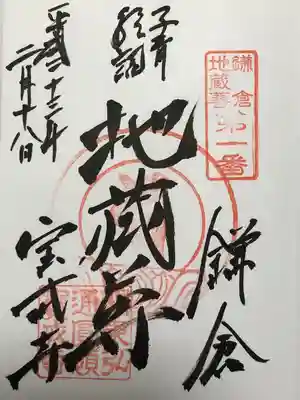 鎌倉
地蔵尊
第一番
鎌倉
子育
経読
地蔵尊
平成二十三年
二月十八日
宝戒寺